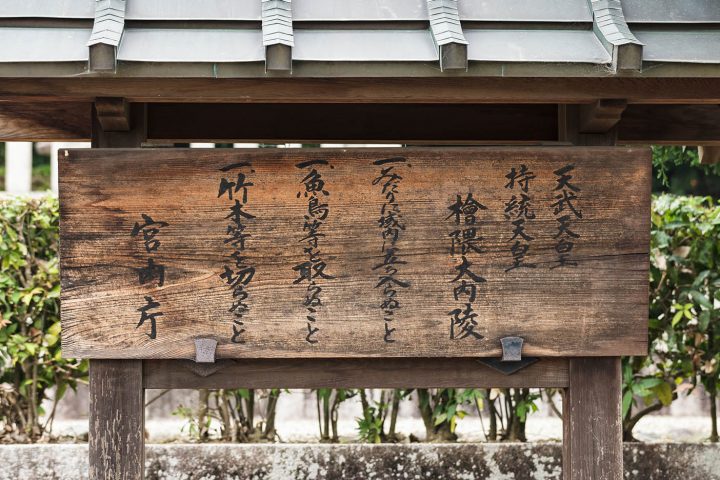 天武天皇
持統天皇
檜隈大内陵
一、みだりに域内に立ち入らぬこと
一、魚鳥等を取らぬこと
一、竹木等を切らぬこと
宮内庁